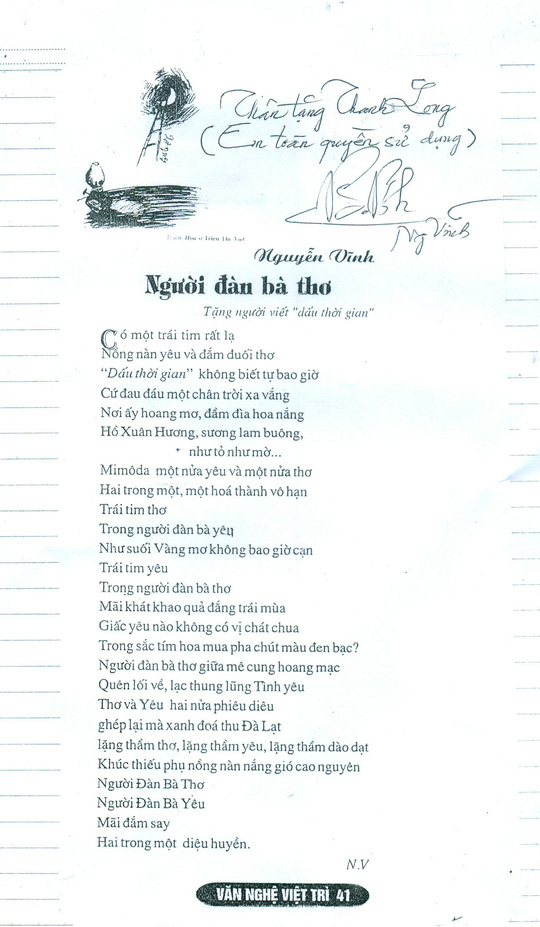 Thân tặng Thanh Long
(Em toàn quyền sử dụng)
Ng Vĩnh
Nguyễn Vĩnh
Người đàn bà thơ
Tặng người viết "dấu thời gian"
Có một trái tim rất lạ
Nồng nàn yêu và đắm đuối thơ
“Dấu thời gian” không biết tự bao giờ
Cứ đau đáu một chân trời xa vắng
Nơi ấy hoang mơ, đầm đìa hoa nắng
Hồ Xuân Hương, sương lam buông,
như tỏ như mờ...
Mimôda một nửa yêu và một nửa thơ
Hai trong một, một hoá thành vô hạn
Trái tim thơ
Trong người đàn bà yêu
Như suối Vàng mơ không bao giờ cạn
Trái tim yêu
Trong người đàn bà thơ
Mãi khát khao quả đắng trái mùa
Giấc yêu nào không có vị chát chua
Trong sắc tím hoa mua pha chút màu đen bạc?
Người đàn bà thơ giữa mê cung hoang mạc
Quên lối về, lạc thung lũng Tình yêu
Thơ và Yêu hai nửa phiêu diêu
ghép lại mà xanh đoá thu Đà Lạt
lặng thầm thơ, lặng thầm yêu, lặng thầm dào dạt
Khúc thiếu phụ nồng nàn nắng gió cao nguyên
Người Đàn Bà Thơ
Người Đàn Bà Yêu
Mãi đắm say
Hai trong một diệu huyền.
N.V
VĂN NGHỆ VIỆT TRÌ 41